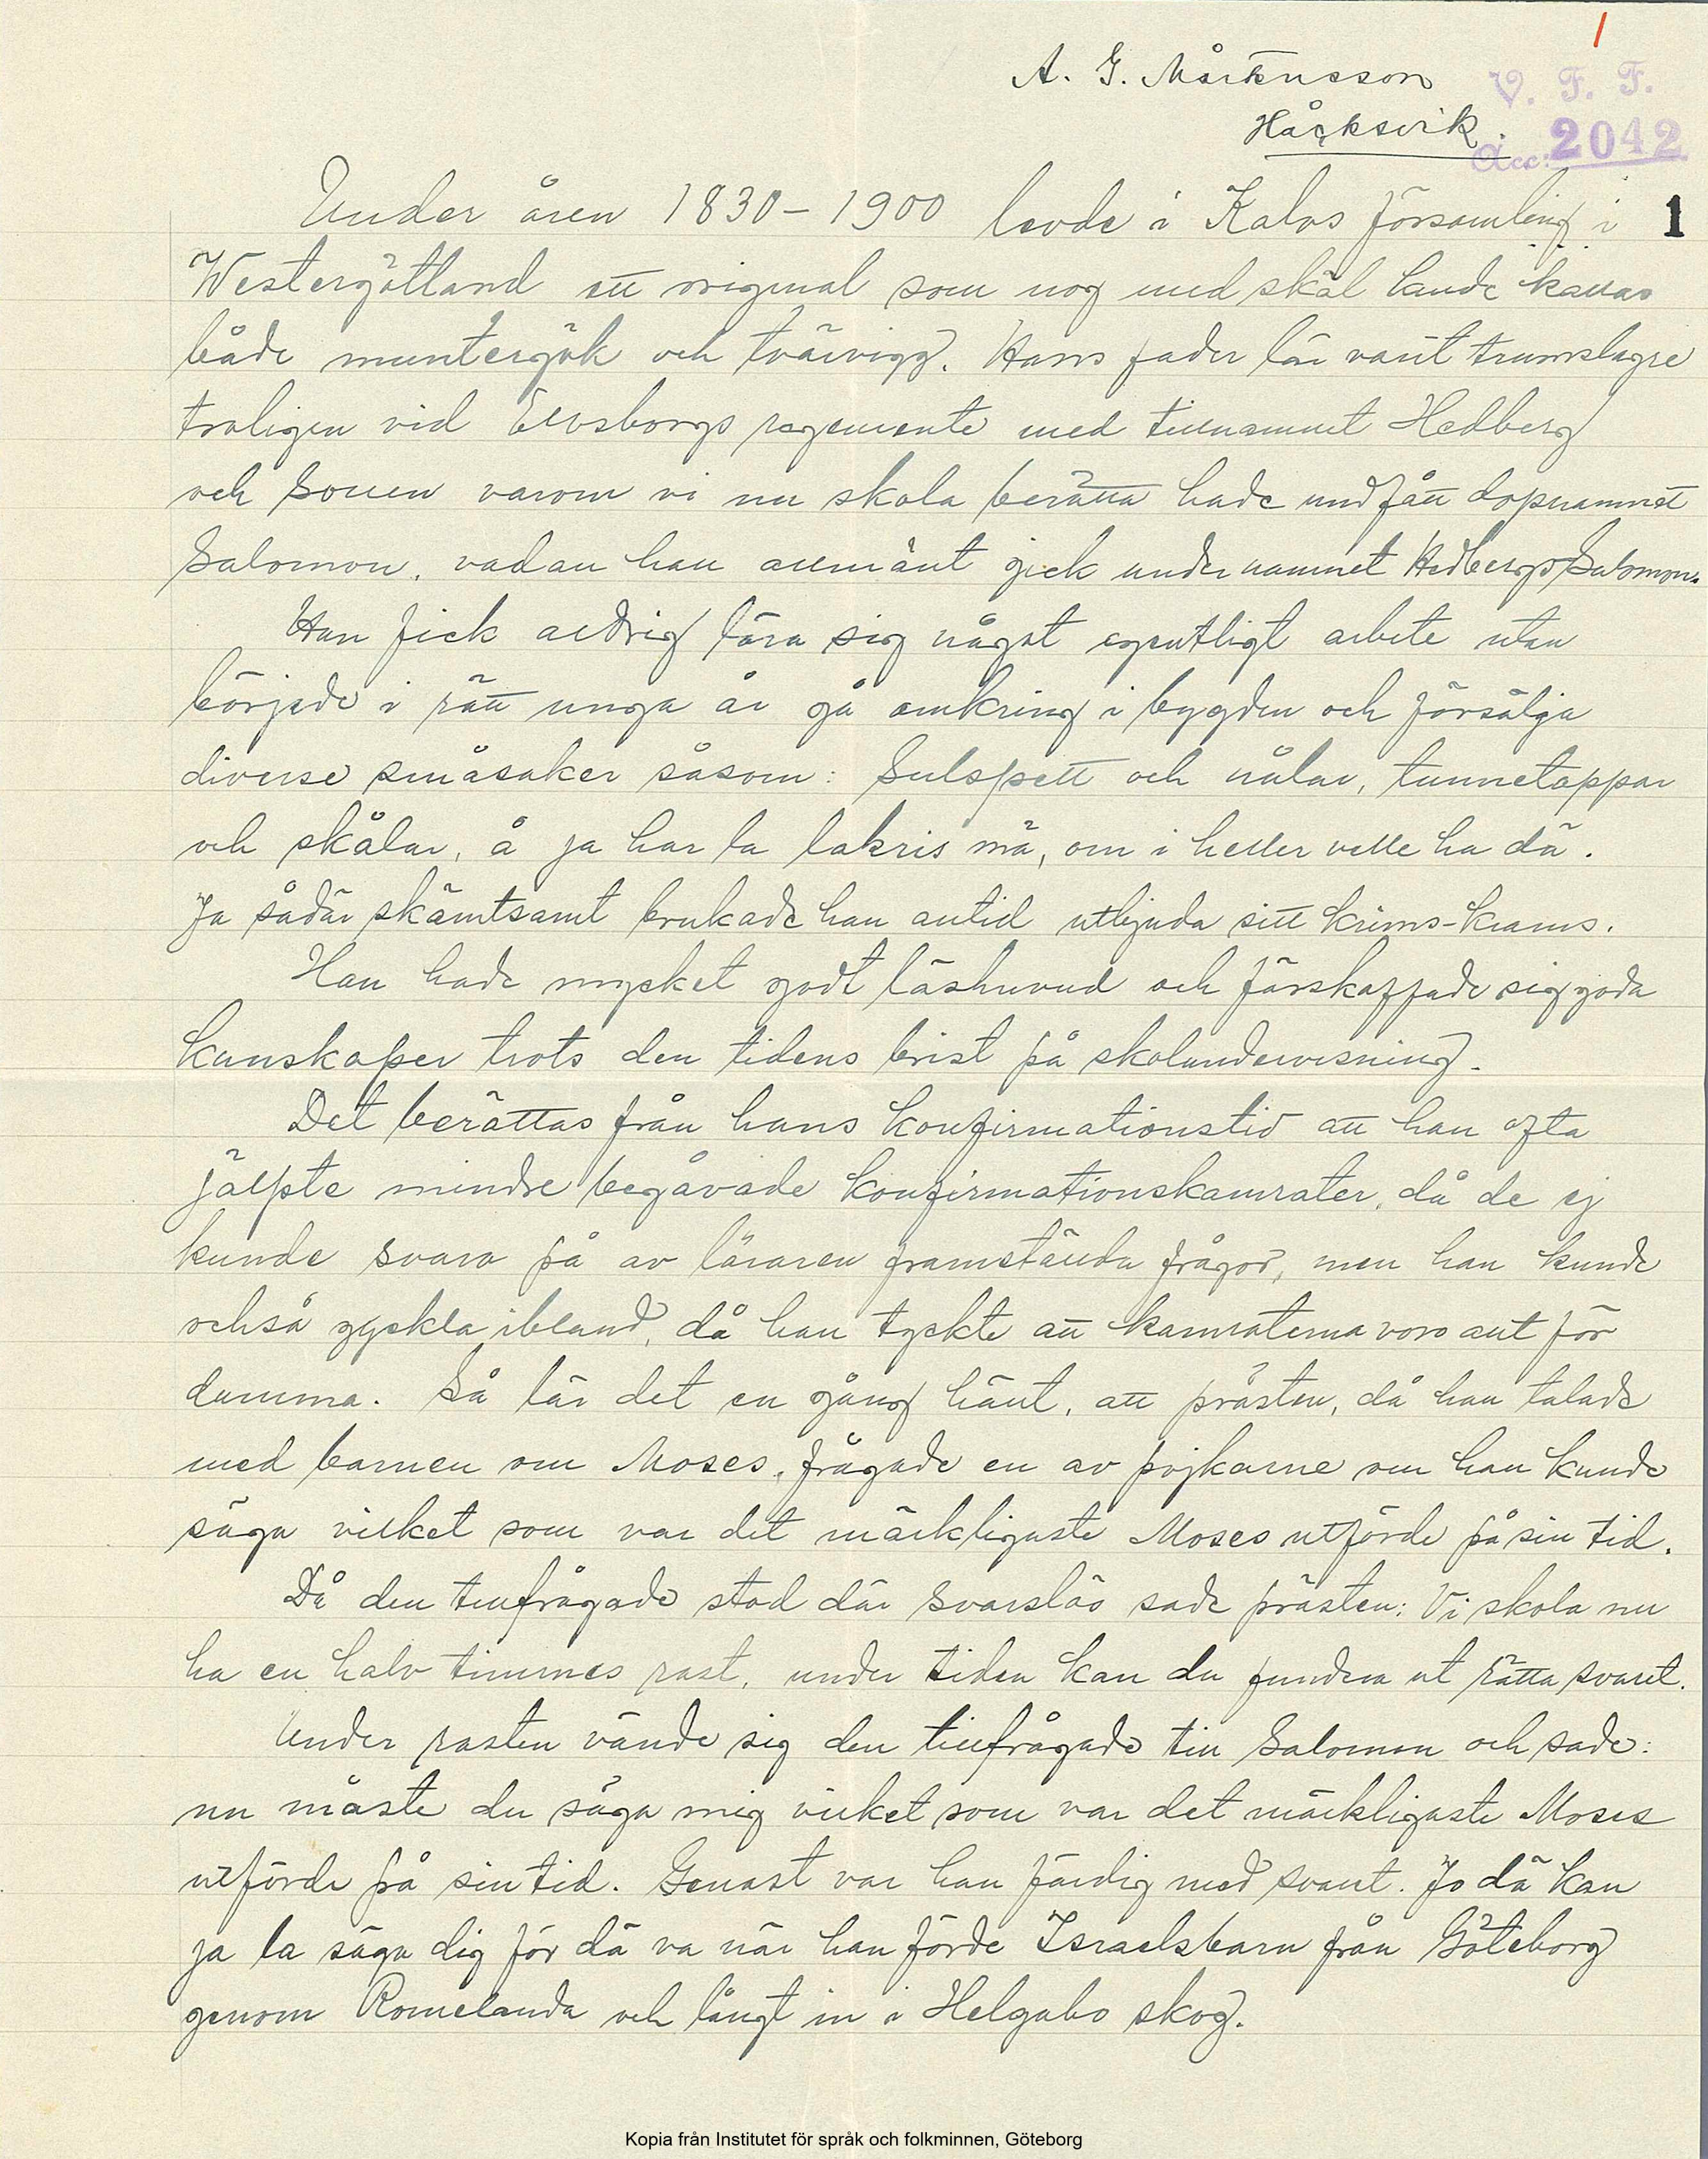 1
A. G. Mårtensson
Håcksvik.
V. F. F.
Acc: 2042
1
Under åren 1830–1900 levde i Kalvs församling i
Westergötland ett original som nog med skäl kunde kallas
både muntergök och tvärvigg. Hans fader lär varit trumslagre
troligen vid Elvsborgs regemente med tillnamnet Hedberg
och sonen varom vi nu skola berätta hade undfått dopnamnet
Salomon, vadan han allmänt gick under namnet Hedbergs Salomon.
Han fick aldrig lära sig något egentligt arbete utan
började i rätt unga år gå omkring i bygden och försälja
diverse småsaker såsom: Sulspett och nålar, tunnetappar
och skålar, å ja har la lakris mä, om i heller velle ha dä.
Ja sådär skämtsamt brukade han alltid utbjuda sitt krims-krams.
Han hade mycket godt läshuvud och förskaffade sig goda
kunskaper trots den tidens brist på skolundervisning.
Det berättas från hans konfirmationstid att han ofta
jälpte mindre begåvade konfirmationskamrater, då de ej
kunde svara på av läraren framställda frågor, men han kunde
också gyckla ibland, då han tyckte att kamraterna voro allt för
dumma. Så lär det en gång hänt, att prästen, då han talade
med barnen om Moses, frågade en av pojkarne om han kunde
säga vilket som var det märkligaste Moses utförde på sin tid.
Då den tillfrågade stod där svarslös sade prästen: Vi skola nu
ha en halv timmes rast, under tiden kan du fundera ut rätta svaret.
Under rasten vände sig den tillfrågade till Salomon och sade:
nu måste du säga mig vilket som var det märkligaste Moses
utförde på sin tid. Genast var han färdig med svaret. Jo dä kan
ja la säga dig för dä va när han förde Israelsbarn från Göteborg
genom Romelanda och långt in i Helgabo skog.
Kopia från Institutet för språk och folkminnen, Göteborg